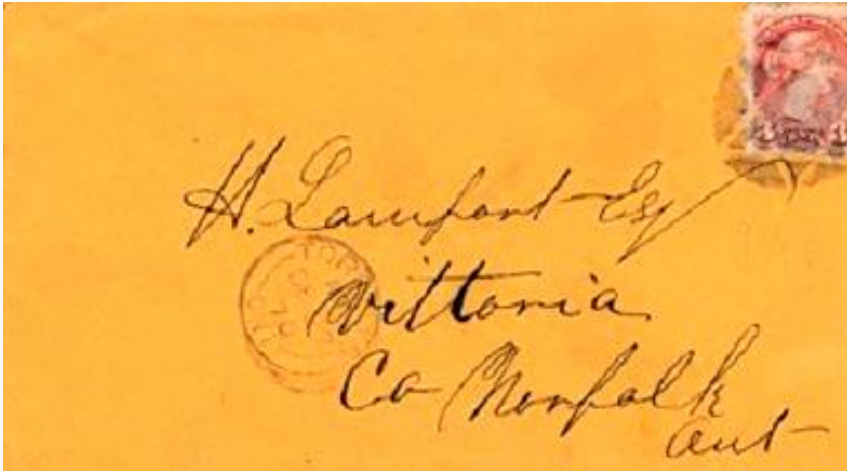 H. Lamport Esq
Vittoria
Co Norfolk
Ont